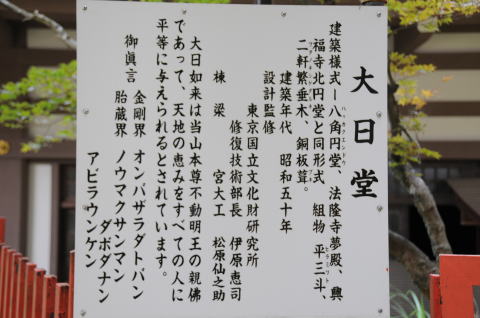 大日堂
建築様式ー八角円堂、法隆寺夢殿、興
福寺北円堂と同形式 組物 平三斗、
二軒繁垂木、銅板葺。
建築年代 昭和五十年
設計監修
東京国立文化財研究所
修復技術部長 伊原恵司
棟梁 宮大工 松原仙之助
大日如来は当山本尊不動明王の親佛
であって、天地の恵みをすべての人に
平等に与えられるとされています。
御眞言
金剛界 オンバザラダトバン
胎蔵界 ノウマクサンマン
ダボダナン
アビラウンケン